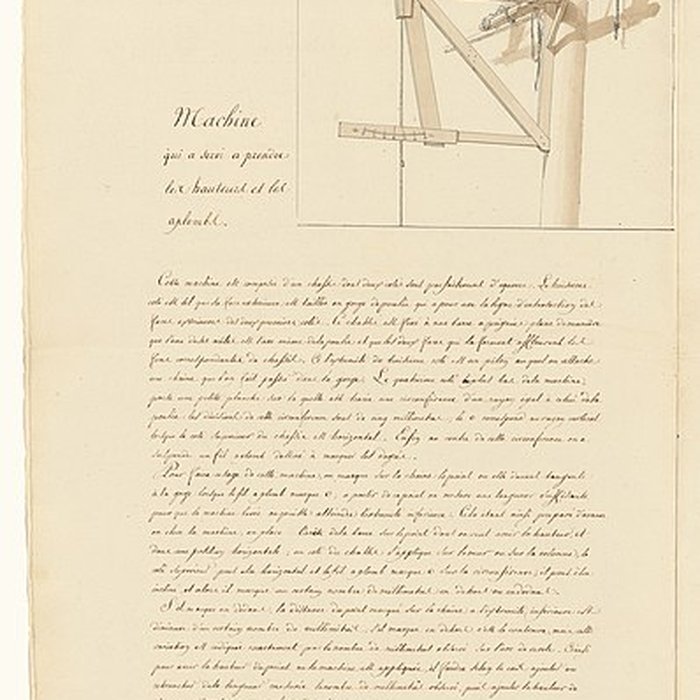 Machine
qui a servi a prendre
les hauteurs et les
aplombs.
Cette machine est composée d'un chassis dont deux cotés sont parfaitement d'equerre. Le troisieme
coté est tel que sa face exterieure est taillée en gorge de poulie, qui a pour axe la ligne d'intersection des
faces exterieures des deux premiers cotés. le chassis est fixé à une lame a poignée, placée de maniere
que l'une des est l'axe même de la poulie, et que les deux faces qui la forment affleurent les
faces correspondantes du chassis. A l'extremité du troisieme coté est un piton auquel on attache
une chaine que l'on fait passer dans la gorge. Le quatrieme coté, le plus bas de la machine,
porte une petite planche sur laquelle est tracée une circonférence d'un rayon egal a celui de la
poulie. les divisions de cette circonference sont de cinq millimetres, le 0 correspond au rayon vertical
lorsque le coté superieur du chassis est horizontal. Enfin au centre de cette circonférence on a
suspendu un fil aplomb destiné à marquer les degrés.
Pour faire usage de cette machine, on marque sur la chaine le point ou elle devient tangente
à la gorge lorsque le fil aplomb marque 0; a partir de ce point on mesure une longueur suffisante
pour que la machine levée en poignée atteindre l'extremité inferieure. Cela étant ainsi préparé d'avance
on eleve la machine, on place l'arête de la lame sur le point dont on veut avoir la hauteur, et
dans une position horizontale; un coté du chassis s'applique sur le mur ou sur la colonne, le
coté superieur peut etre horizontal et le fil aplomb marque 0 sur la circonférence; il peut etre
incliné et alors il marque un certain nombre de millimetres en dehors ou en dedans.
S'il marque en dedans, la distance du point marqué sur la chaine a l'extremité inférieure est
diminuée d'un certain nombre de millimetres, s'il marque en dehors c'est le contraire, mais cette
variation est indiquée exactement par le nombre de millimetres observé sur l'arc de cercle. Ainsi
pour avoir la hauteur du point ou la machine est appliquée, il faudra selon le cas, ajouter ou
retrancher de la longueur mesurée le nombre de millimetres observé, puis ajouter la hauteur de